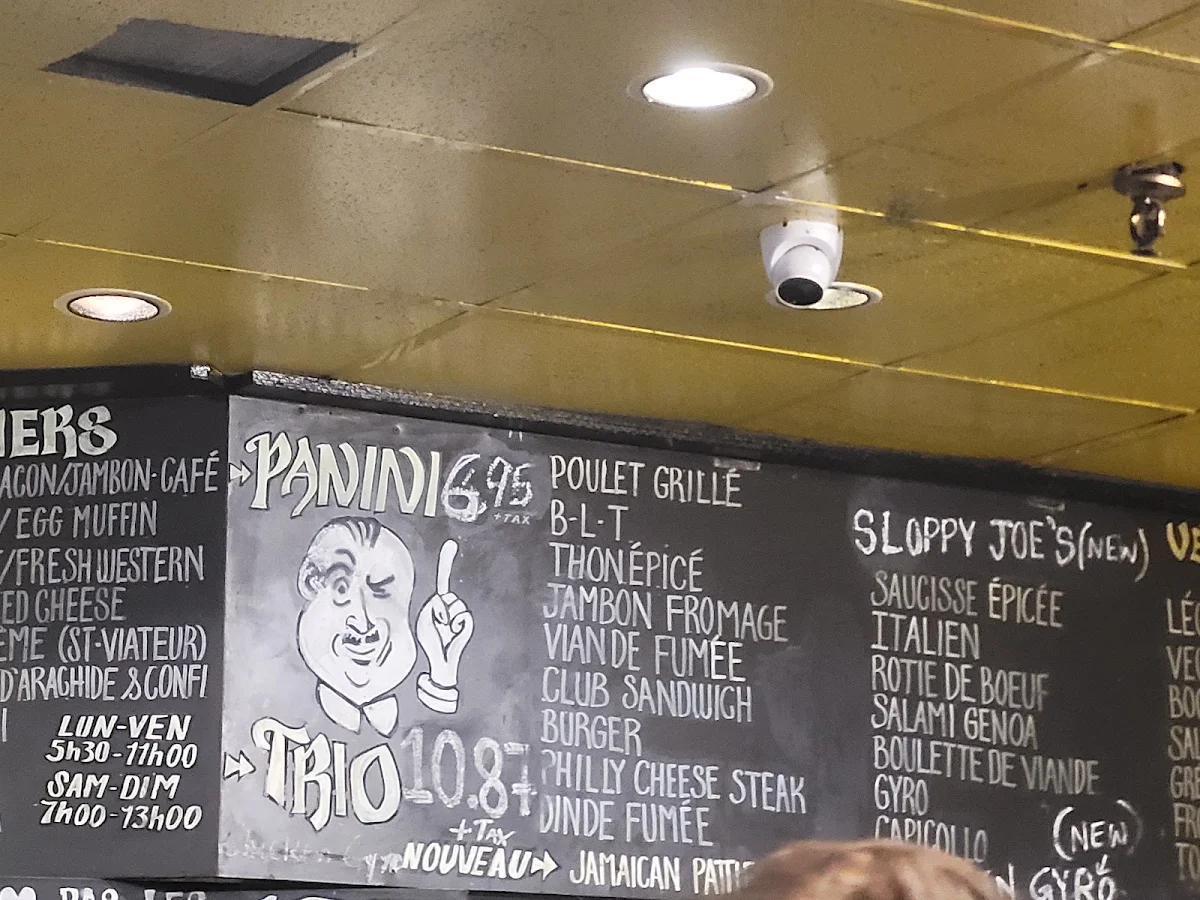 ACON/JAMBON-CAFÉ
/ EGG MUFFIN
/FRESH WESTERN
ED CHEESE
ÈME (ST-VIATEUR)
D'ARACHIDE & CONFI
LUN-VEN
5h30-11h00
SAM-DIM
7h00-13h00
PANINI 6.95
+TAX
TRIO 10.87
+TAX
NOUVEAU
POULET GRILLÉ
B-L-T
THON ÉPICÉ
JAMBON FROMAGE
VIANDE FUMÉE
CLUB SANDWICH
BURGER
PHILLY CHEESE STEAK
DINDE FUMÉE
JAMAICAN
SLOPPY JOE'S (NEW)
SAUCISSE ÉPICÉE
ITALIEN
ROTIE DE BOEUF
SALAMI GENOA
BOULETTE DE VIANDE
GYRO
CAPICOLLO
(NEW)
GYRO